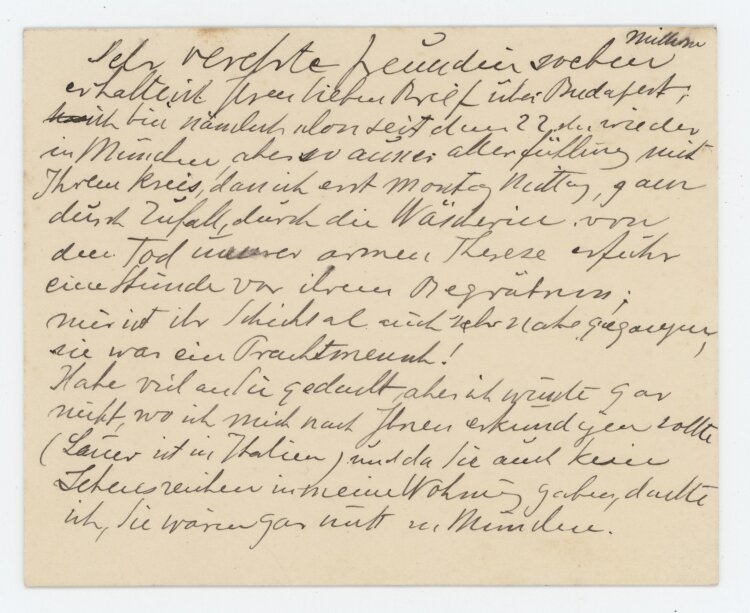 Mittwoch
Sehr verehrte Freundin soeben
erhalte ich Ihren lieben Brief über Budapest;
ich bin nämlich schon seit dem 22. wieder
in München, aber so ausser aller Fühlung mit
Ihrem Kreis, dass ich erst Montag Mittag, ganz
durch Zufall, durch die Wäscherin von
dem Tod unserer armen Therese erfuhr
eine Stunde vor ihrem Begräbnis;
mir ist ihr Schicksal auch sehr nahe gegangen,
sie war ein Prachtmensch!
Habe viel an Sie gedacht, aber ich wusste gar
nicht, wo ich mich nach Ihnen erkundigen sollte
( ist in Italien) und da Sie auch kein
Lebenszeichen in meine Wohnung gaben, dachte
ich, Sie wären gar nicht in München.